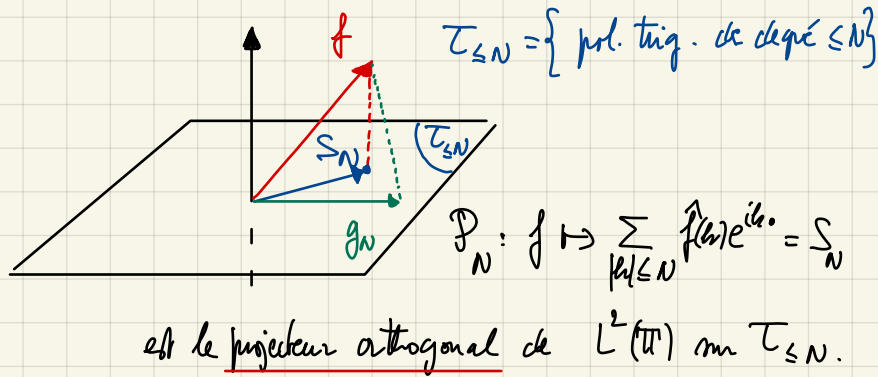 f
τ≤N = { pol. trig. de degré ≤ N }
S_N
τ≤N
g_N
P_N : f ↦ ∑_{|k|≤N} f̂(k)e^{ik·} = S_N
est le projecteur orthogonal de L²(𝕋) sur τ≤N.